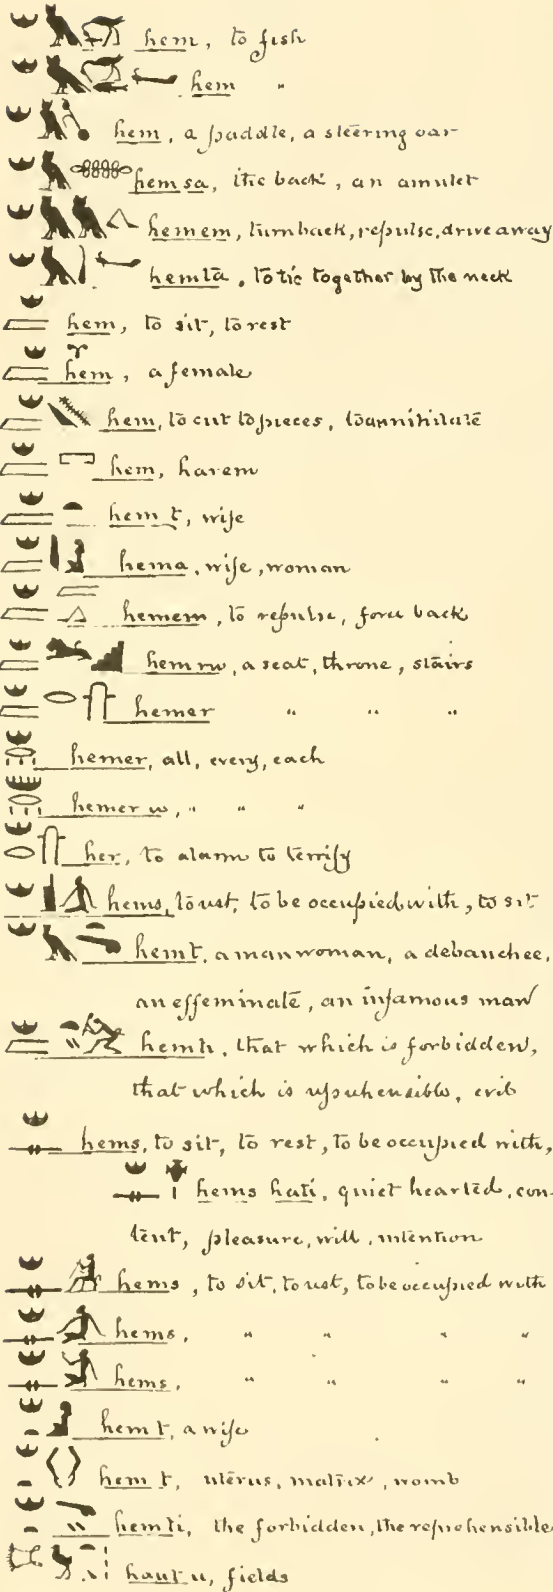 hem, to fish
hem "
hem, a paddle, a steering oar
hemsa, the back, an amulet
hemem, turn back, repulse, drive away
hemta, to tie together by the neck
hem, to sit, to rest
hem, a female
hem, to cut to pieces, to annihilate
hem, harem
hem t, wife
hema, wife, woman
hemem, to repulse, force back
hem rw, a seat, throne, stairs
hemer " " "
hemer, all, every, each
hemer w, " " "
her, to alarm to terrify
hems, to rest, to be occupied with, to sit
hemt, a man woman, a debauchee,
an effeminate, an infamous man
hemti, that which is forbidden,
that which is reprehensible, evil
hems, to sit, to rest, to be occupied with,
hems hati, quiet hearted, con-
tent, pleasure, will, intention
hems, to sit, to rest, to be occupied with
hems, " " " "
hems, " " " "
hem t, a wife
hem t, uterus, matrix, womb
hemti, the forbidden, the reprehensible
haut u, fields